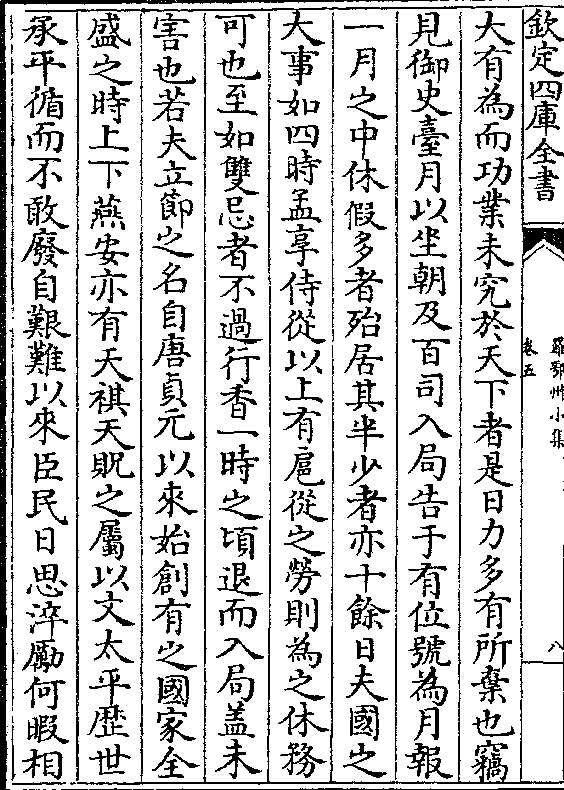 欽定四庫全書
羅鄂州小集
卷五
八
大有為而功業未究於天下者是日力多有所棄也竊
見御史臺月以坐朝及百司入局告于有位號為月報
一月之中休假多者殆居其半少者亦十餘日夫國之
大事如四時孟享侍從以上有扈從之勞則為之休務
可也至如雙忌者不過行香一時之頃退而入局盖未
害也若夫立節之名自唐貞元以來始創有之國家全
盛之時上下燕安亦有天祺天貺之屬以文太平歴世
承平循而不敢廢自艱難以來臣民日思淬勵何暇相